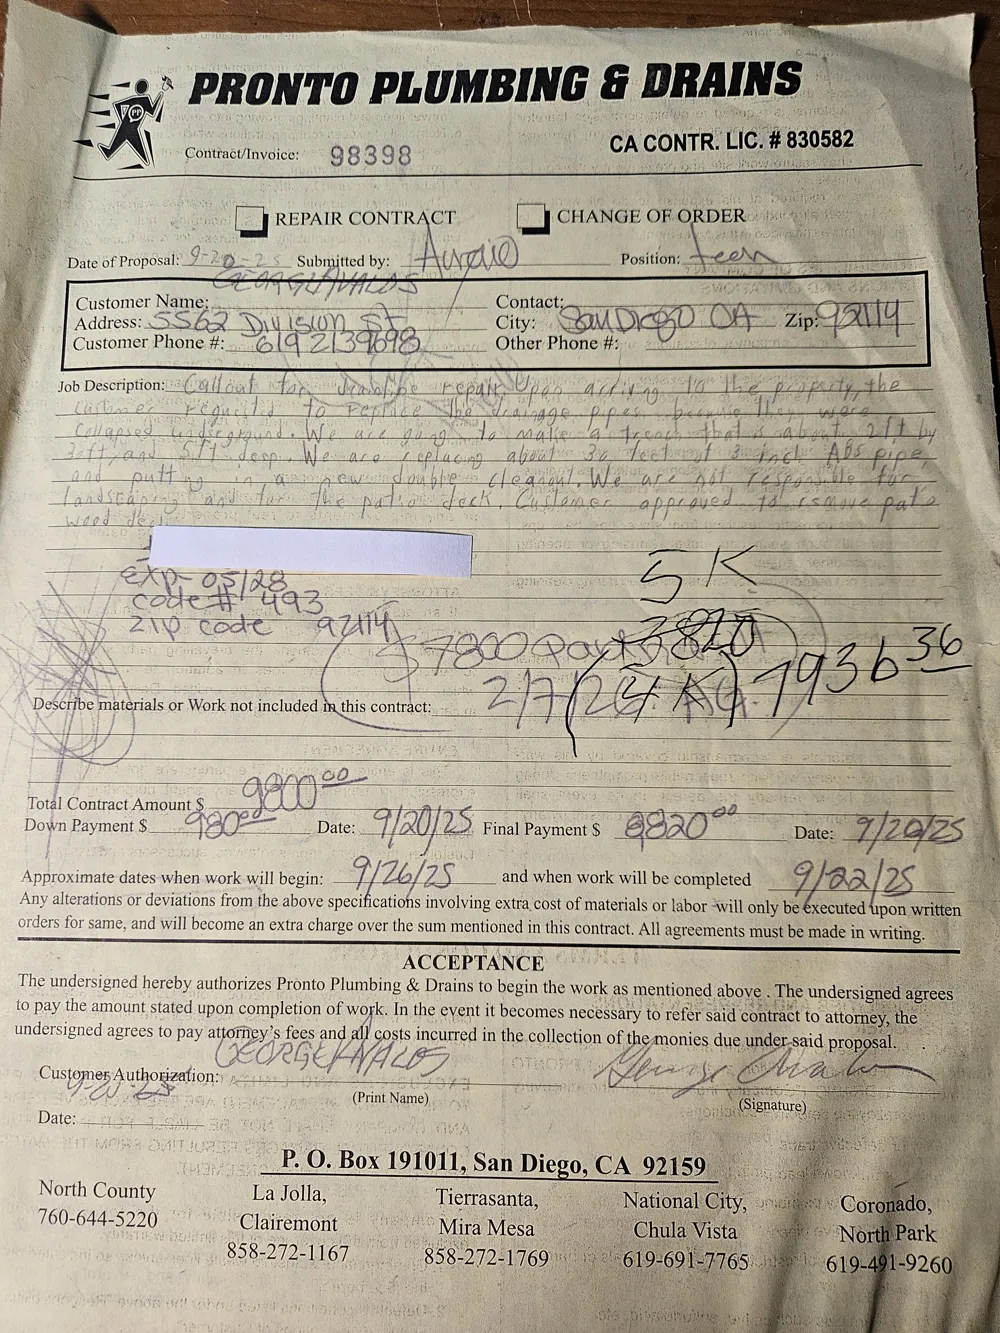 PRONTO PLUMBING & DRAINS
PP
Contract/Invoice: 98398
CA CONTR. LIC. # 830582
REPAIR CONTRACT
CHANGE OF ORDER
Date of Proposal: 9-20-25 Submitted by: Position: tech
Customer Name: GEORGE AVALOS Contact:
Address: 5562 Division St City: San Diego CA Zip: 92114
Customer Phone #: 6192139698 Other Phone #:
Job Description: Callout for drainline repair. Upon arriving to the property, the
customer requested to replace the drainage pipes because they were
collapsed underground. We are going to make a trench that is about 2ft by
30ft, and 5ft deep. We are replacing about 30 feet of 3 inch ABS pipe,
and putting in a new double cleanout. We are not responsible for
landscaping and for the patio deck. Customer approved to remove patio
wood deck
exp- 05/28
code# 493
zip code 92114
5K
3820
$7800
2/7/26
(4K) 7936 36
Describe materials or Work not included in this contract:
Total Contract Amount $ 9800 00
Down Payment $ 980 00 Date: 9/20/25 Final Payment $ 8820 00 Date: 9/20/25
Approximate dates when work will begin: 9/26/25 and when work will be completed 9/22/25
Any alterations or deviations from the above specifications involving extra cost of materials or labor will only be executed upon written
orders for same, and will become an extra charge over the sum mentioned in this contract. All agreements must be made in writing.
ACCEPTANCE
The undersigned hereby authorizes Pronto Plumbing & Drains to begin the work as mentioned above . The undersigned agrees
to pay the amount stated upon completion of work. In the event it becomes necessary to refer said contract to attorney, the
undersigned agrees to pay attorney's fees and all costs incurred in the collection of the monies due under said proposal.
Customer Authorization: GEORGE AVALOS
(Print Name) (Signature)
Date: 9-20-25
P. O. Box 191011, San Diego, CA 92159
North County
760-644-5220
La Jolla,
Clairemont
858-272-1167
Tierrasanta,
Mira Mesa
858-272-1769
National City,
Chula Vista
619-691-7765
Coronado,
North Park
619-491-9260